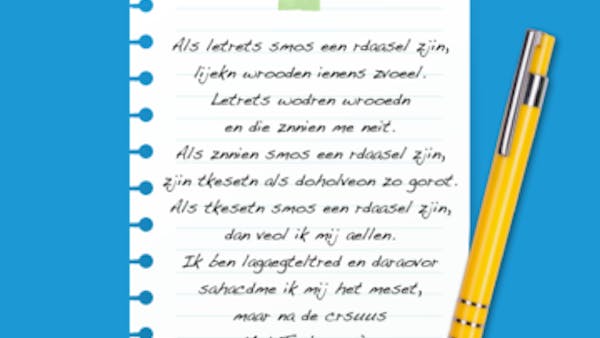 Als letrets smos een rdaasel zjin,
lijekn wrooden ienens zvoeel.
Letrets wodren wrooedn
en die znnien me neit.
Als znnien smos een rdaasel zjin,
zjin tkesetn als doholveon zo gorot.
Als tkesetn smos een rdaasel zjin,
dan veol ik mij aellen.
Ik ben lagaegteltred en daraovor
sahacdme ik mij het meset,
maar na de crsuus